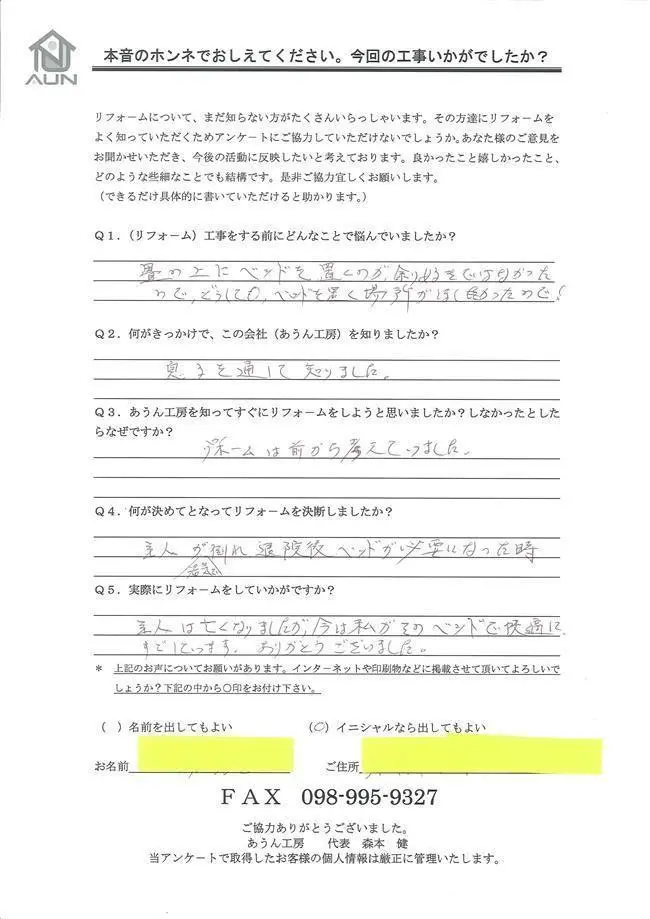 AUN
本音のホンネでおしえてください。今回の工事いかがでしたか？
リフォームについて、まだ知らない方がたくさんいらっしゃいます。その方達にリフォームを
よく知っていただくためアンケートにご協力していただけないでしょうか。あなた様のご意見を
お聞かせいただき、今後の活動に反映したいと考えております。良かったこと嬉しかったこと、
どのような些細なことでも結構です。是非ご協力宜しくお願いします。
（できるだけ具体的に書いていただけると助かります。）
Ｑ１．（リフォーム）工事をする前にどんなことで悩んでいましたか？
畳の上にベッドを置くのが、
ので、どうしても、ベッドを置く場所がほしかったので！
Ｑ２．何がきっかけで、この会社（あうん工房）を知りましたか？
息子を通して知りました。
Ｑ３．あうん工房を知ってすぐにリフォームをしようと思いましたか？しなかったとした
らなぜですか？
リホームは前から考えていました。
Ｑ４．何が決めてとなってリフォームを決断しましたか？
主人が倒れ退院後ベッドが必要になった時
Ｑ５．実際にリフォームをしていかがですか？
主人は亡くなりましたが、今は私がそのベッドで快適に
すごしています。ありがとうございました。
＊ 上記のお声についてお願いがあります。インターネットや印刷物などに掲載させて頂いてよろしいで
しょうか？下記の中から〇印をお付け下さい。
（ ）名前を出してもよい （〇）イニシャルなら出してもよい
お名前 ご住所
ＦＡＸ 098-995-9327
ご協力ありがとうございました。
あうん工房 代表 森本 健
当アンケートで取得したお客様の個人情報は厳正に管理いたします。